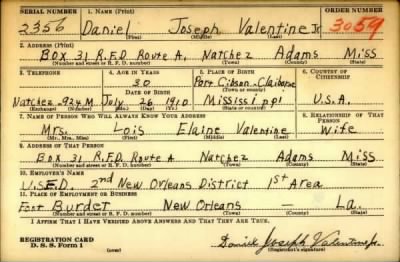 SERIAL NUMBER 1. NAME (Print) ORDER NUMBER
2356 Daniel Joseph Valentine Jr 3059
(First) (Middle) (Last)
2. ADDRESS (Print)
Box 31 R.F.D Route A, Natchez Adams Miss
(Number and street or R. F. D. number) (Town) (County) (State)
3. TELEPHONE 4. AGE IN YEARS 5. PLACE OF BIRTH 6. COUNTRY OF CITIZENSHIP
30 Port Gibson-Claiborne
DATE OF BIRTH (Town or county)
Natchez 924 M July 26 1910 Mississippi U.S.A.
(Exchange) (Number) (Mo.) (Day) (Yr.) (State or country)
7. NAME OF PERSON WHO WILL ALWAYS KNOW YOUR ADDRESS 8. RELATIONSHIP OF THAT PERSON
Mrs. Lois Elaine Valentine Wife
(Mr., Mrs., Miss) (First) (Middle) (Last)
9. ADDRESS OF THAT PERSON
Box 31 R.F.D. Route A Natchez Adams Miss
(Number and street or R. F. D. number) (Town) (County) (State)
10. EMPLOYER'S NAME
U.S.E.D. 2nd New Orleans District 1st Area
11. PLACE OF EMPLOYMENT OR BUSINESS
Foot Burdet New Orleans — La.
(Number and street or R. F. D. number) (Town) (County) (State)
I AFFIRM THAT I HAVE VERIFIED ABOVE ANSWERS AND THAT THEY ARE TRUE.
REGISTRATION CARD
D. S. S. Form 1 Daniel Joseph Valentine Jr.